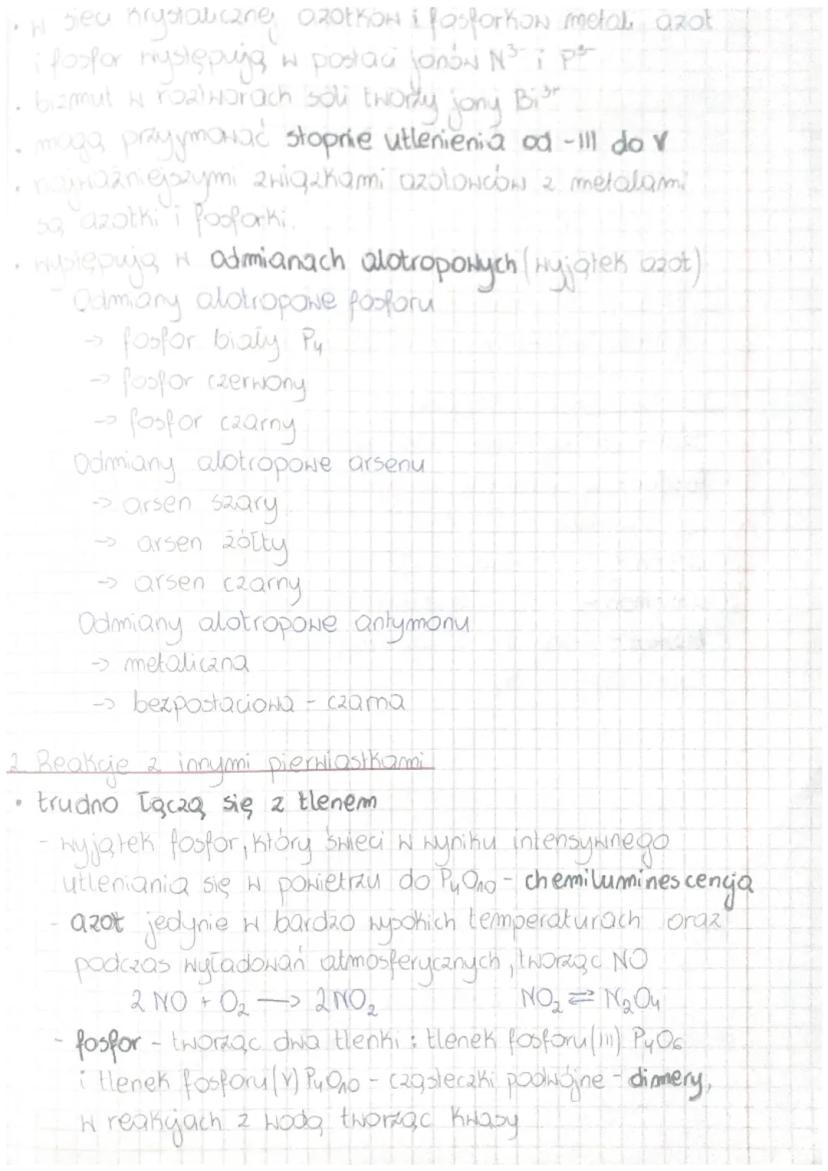 • w sieci krystalicznej azotków i fosforków metali azot
i fosfor występują w postaci jonów N³⁻ i P³⁻
• bizmut w roztworach soli tworzy jony Bi³⁺
• mogą przyjmować stopnie utlenienia od -III do V
• najważniejszymi związkami azotowców z metalami
są azotki i fosforki.
• występują w odmianach alotropowych (wyjątek azot)
Odmiany alotropowe fosforu
-> fosfor biały P₄
-> fosfor czerwony
-> fosfor czarny
Odmiany alotropowe arsenu
-> arsen szary
-> arsen żółty
-> arsen czarny
Odmiany alotropowe antymonu
-> metaliczna
-> bezpostaciowa - czarna
2. Reakcje z innymi pierwiastkami
• trudno łączą się z tlenem
- wyjątek fosfor, który świeci w wyniku intensywnego
utleniania się w powietrzu do P₄O₁₀ - chemiluminescencja
- azot jedynie w bardzo wysokich temperaturach oraz
podczas wyładowań atmosferycznych, tworząc NO
2 NO + O₂ —> 2NO₂ NO₂ ⇄ N₂O₄
- fosfor - tworząc dwa tlenki : tlenek fosforu(III) P₄O₆
i tlenek fosforu(V) P₄O₁₀ - cząsteczki podwójne - dimery,
w reakcjach z wodą tworząc kwasy